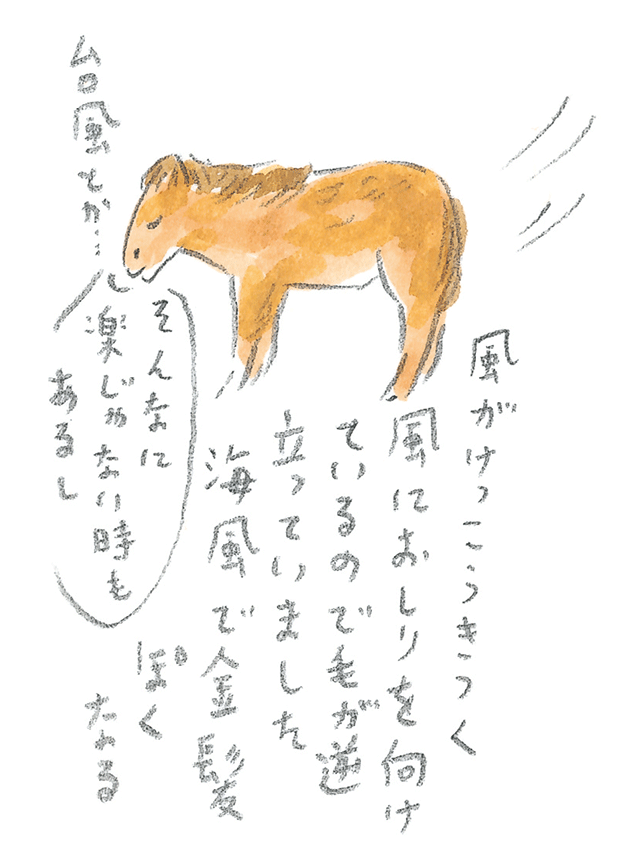 風がけっこうきつく
風におしりを向け
ているので毛が逆
立っていました
海風で金髪
ぽく
なる
そんなに
楽じゃない時も
あるし
台風とか…